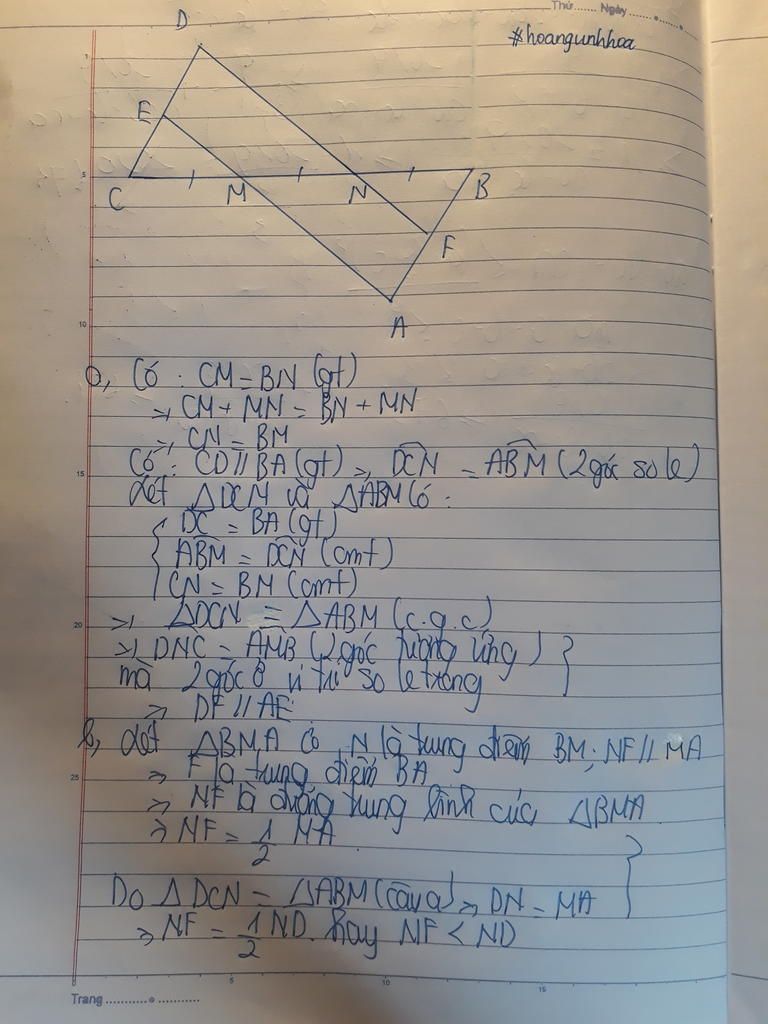 Thứ ........ Ngày ........
#hoangunhhoa
D
E
C M N B
F
A
a, Có : CM = BN (gt)
=> CM + MN = BN + MN
=> CN = BM
Có : CD // BA (gt) => DCN = ABM (2 góc so le)
Xét △DCN và △ABM có :
DC = BA (gt)
ABM = DCN (cmt)
CN = BM (cmt)
=> △DCN = △ABM (c.g.c)
=> DNC = AMB (2 góc tương ứng)
mà 2 góc ở vị trí so le trong
=> DF // AE
b, Xét △BMA có N là trung điểm BM; NF // MA
=> F là trung điểm BA
=> NF là đường trung bình của △BMA
=> NF = 1/2 MA
Do △DCN = △ABM (câu a) => DN = MA
=> NF = 1/2 ND. hay NF < ND
Trang ........